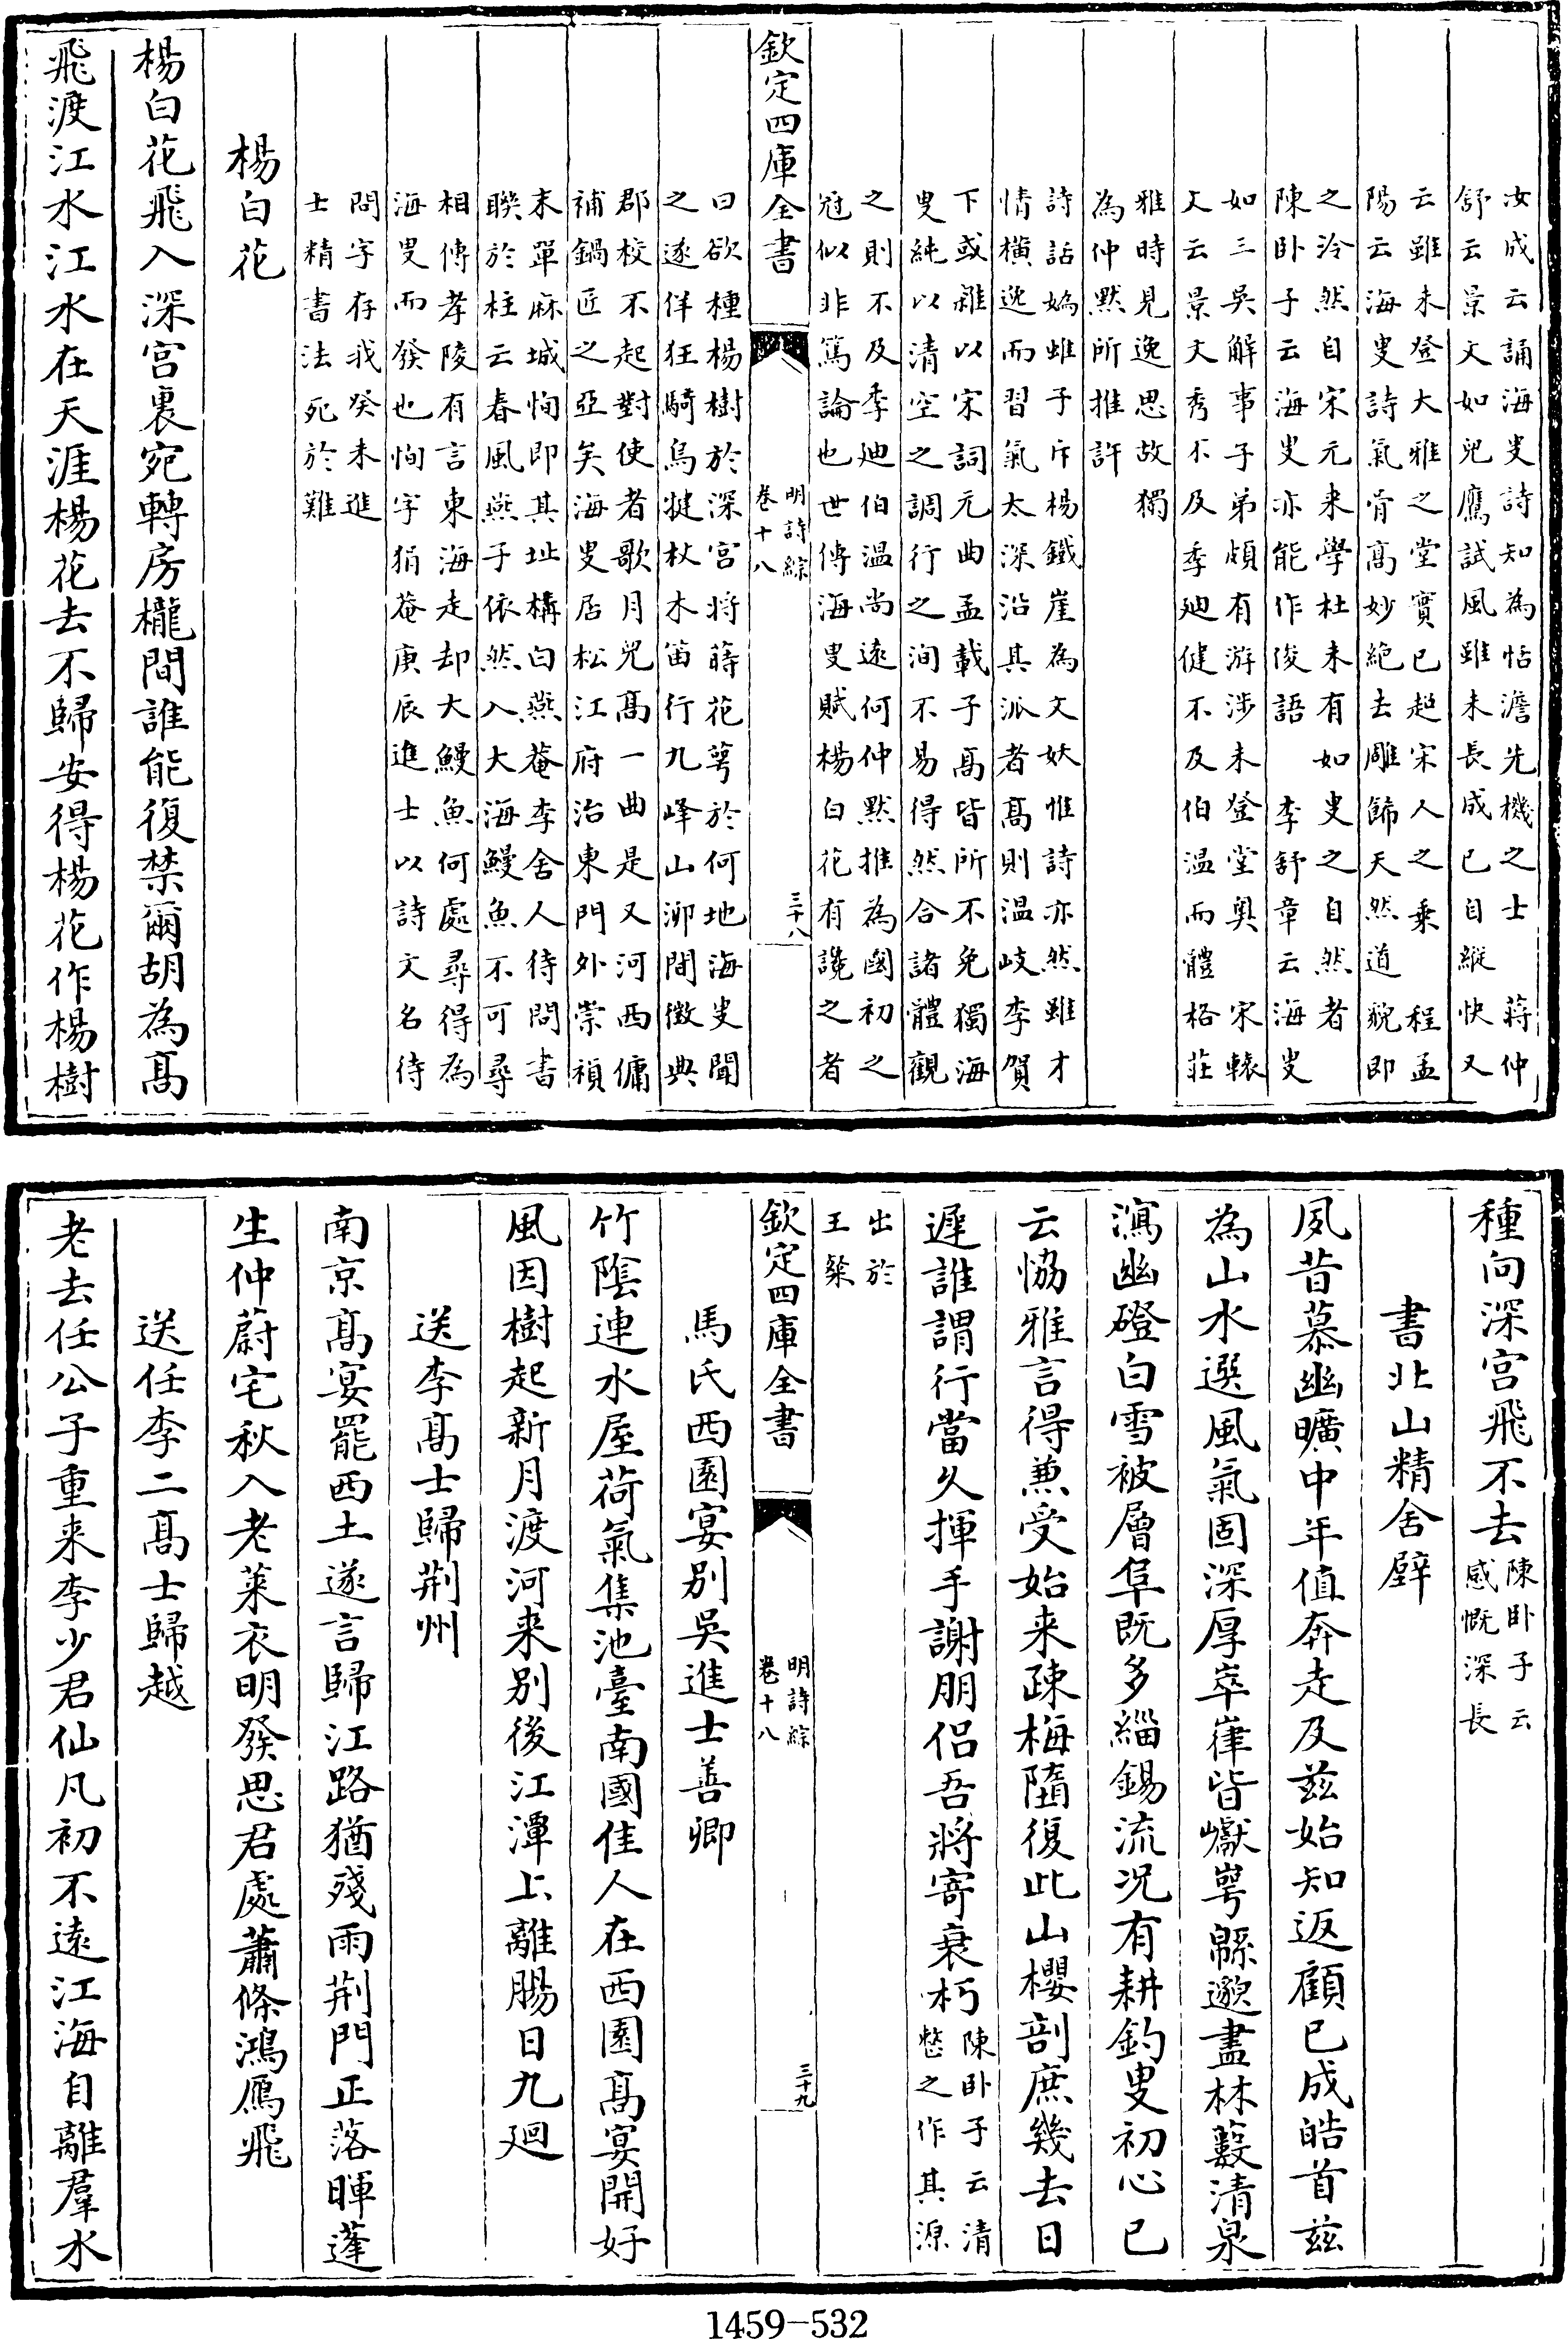 汝成云誦海叟詩知為恬澹先機之士　蔣仲
舒云景文如兒鷹試風雖未長成已自縱快又
云雖未登大雅之堂實已超宋人之乘　程孟
陽云海叟詩氣骨高妙絶去雕飾天然道貌即
之泠然自宋元来學杜未有如叟之自然者
陳卧子云海叟亦能作俊語　李舒章云海叟
如三吳解事子弟頗有游涉未登堂奥　宋轅
文云景文秀不及季廸健不及伯温而體格莊
雅時見逸思故獨
為仲默所推許
詩話嬀雖子斥楊鐵崖為文妖惟詩亦然雖才
情橫逸而習氣太深沿其派者高則温岐李賀
下或雜以宋詞元曲孟載子高皆所不免獨海
叟純以清空之調行之洵不易得然合諸體觀
之則不及季廸伯温尚遠何仲默推為國初之
冠似非篤論也世傳海叟賦楊白花有䜛之者
欽定四庫全書
明詩綜
卷十八
三十八
曰欲種楊樹於深宫将蒔花萼於何地海叟聞
之遂佯狂騎烏犍杖木笛行九峰山泖間徴典
郡校不起對使者歌月兒高一曲是又河西傭
補鍋匠之亞矣海叟居松江府治東門外崇禎
末單麻城恂即其址構白燕菴李舍人待問書
聨於柱云春風燕子依然入大海鰻魚不可尋
相傳孝陵有言東海走却大鰻魚何處尋得為
海叟而發也恂字狷菴庚辰進士以詩文名待
問字存我癸未進
士精書法死於難
楊白花
楊白花飛入深宫裏宛轉房櫳間誰能復禁爾胡為高
飛渡江水江水在天涯楊花去不歸安得楊花作楊樹
種向深宫飛不去陳卧子云
感慨深長
書北山精舍壁
夙昔慕幽曠中年值奔走及茲始知返顧已成皓首茲
為山水選風氣固深厚崒嵂皆巘崿緜邈盡林藪清泉
瀉幽磴白雪被層阜既多緇錫流况有耕釣叟初心已
云恊雅言得兼受始来疎梅隨復此山櫻剖庶幾去日
遲誰謂行當久揮手謝朋侣吾將寄衰朽陳卧子云清
憗之作其源
出於
王粲
欽定四庫全書
明詩綜
卷十八
三十九
馬氏西園宴别吳進士善卿
竹陰連水屋荷氣集池臺南國佳人在西園高宴開好
風因樹起新月渡河来别後江潭上離腸日九廻
送李高士歸荆州
南京高宴罷西土遂言歸江路猶殘雨荆門正落暉蓬
生仲蔚宅秋入老萊衣明發思君處蕭條鴻鴈飛
送任李二高士歸越
老去任公子重来李少君仙凡初不遠江海自離羣水
1459-532